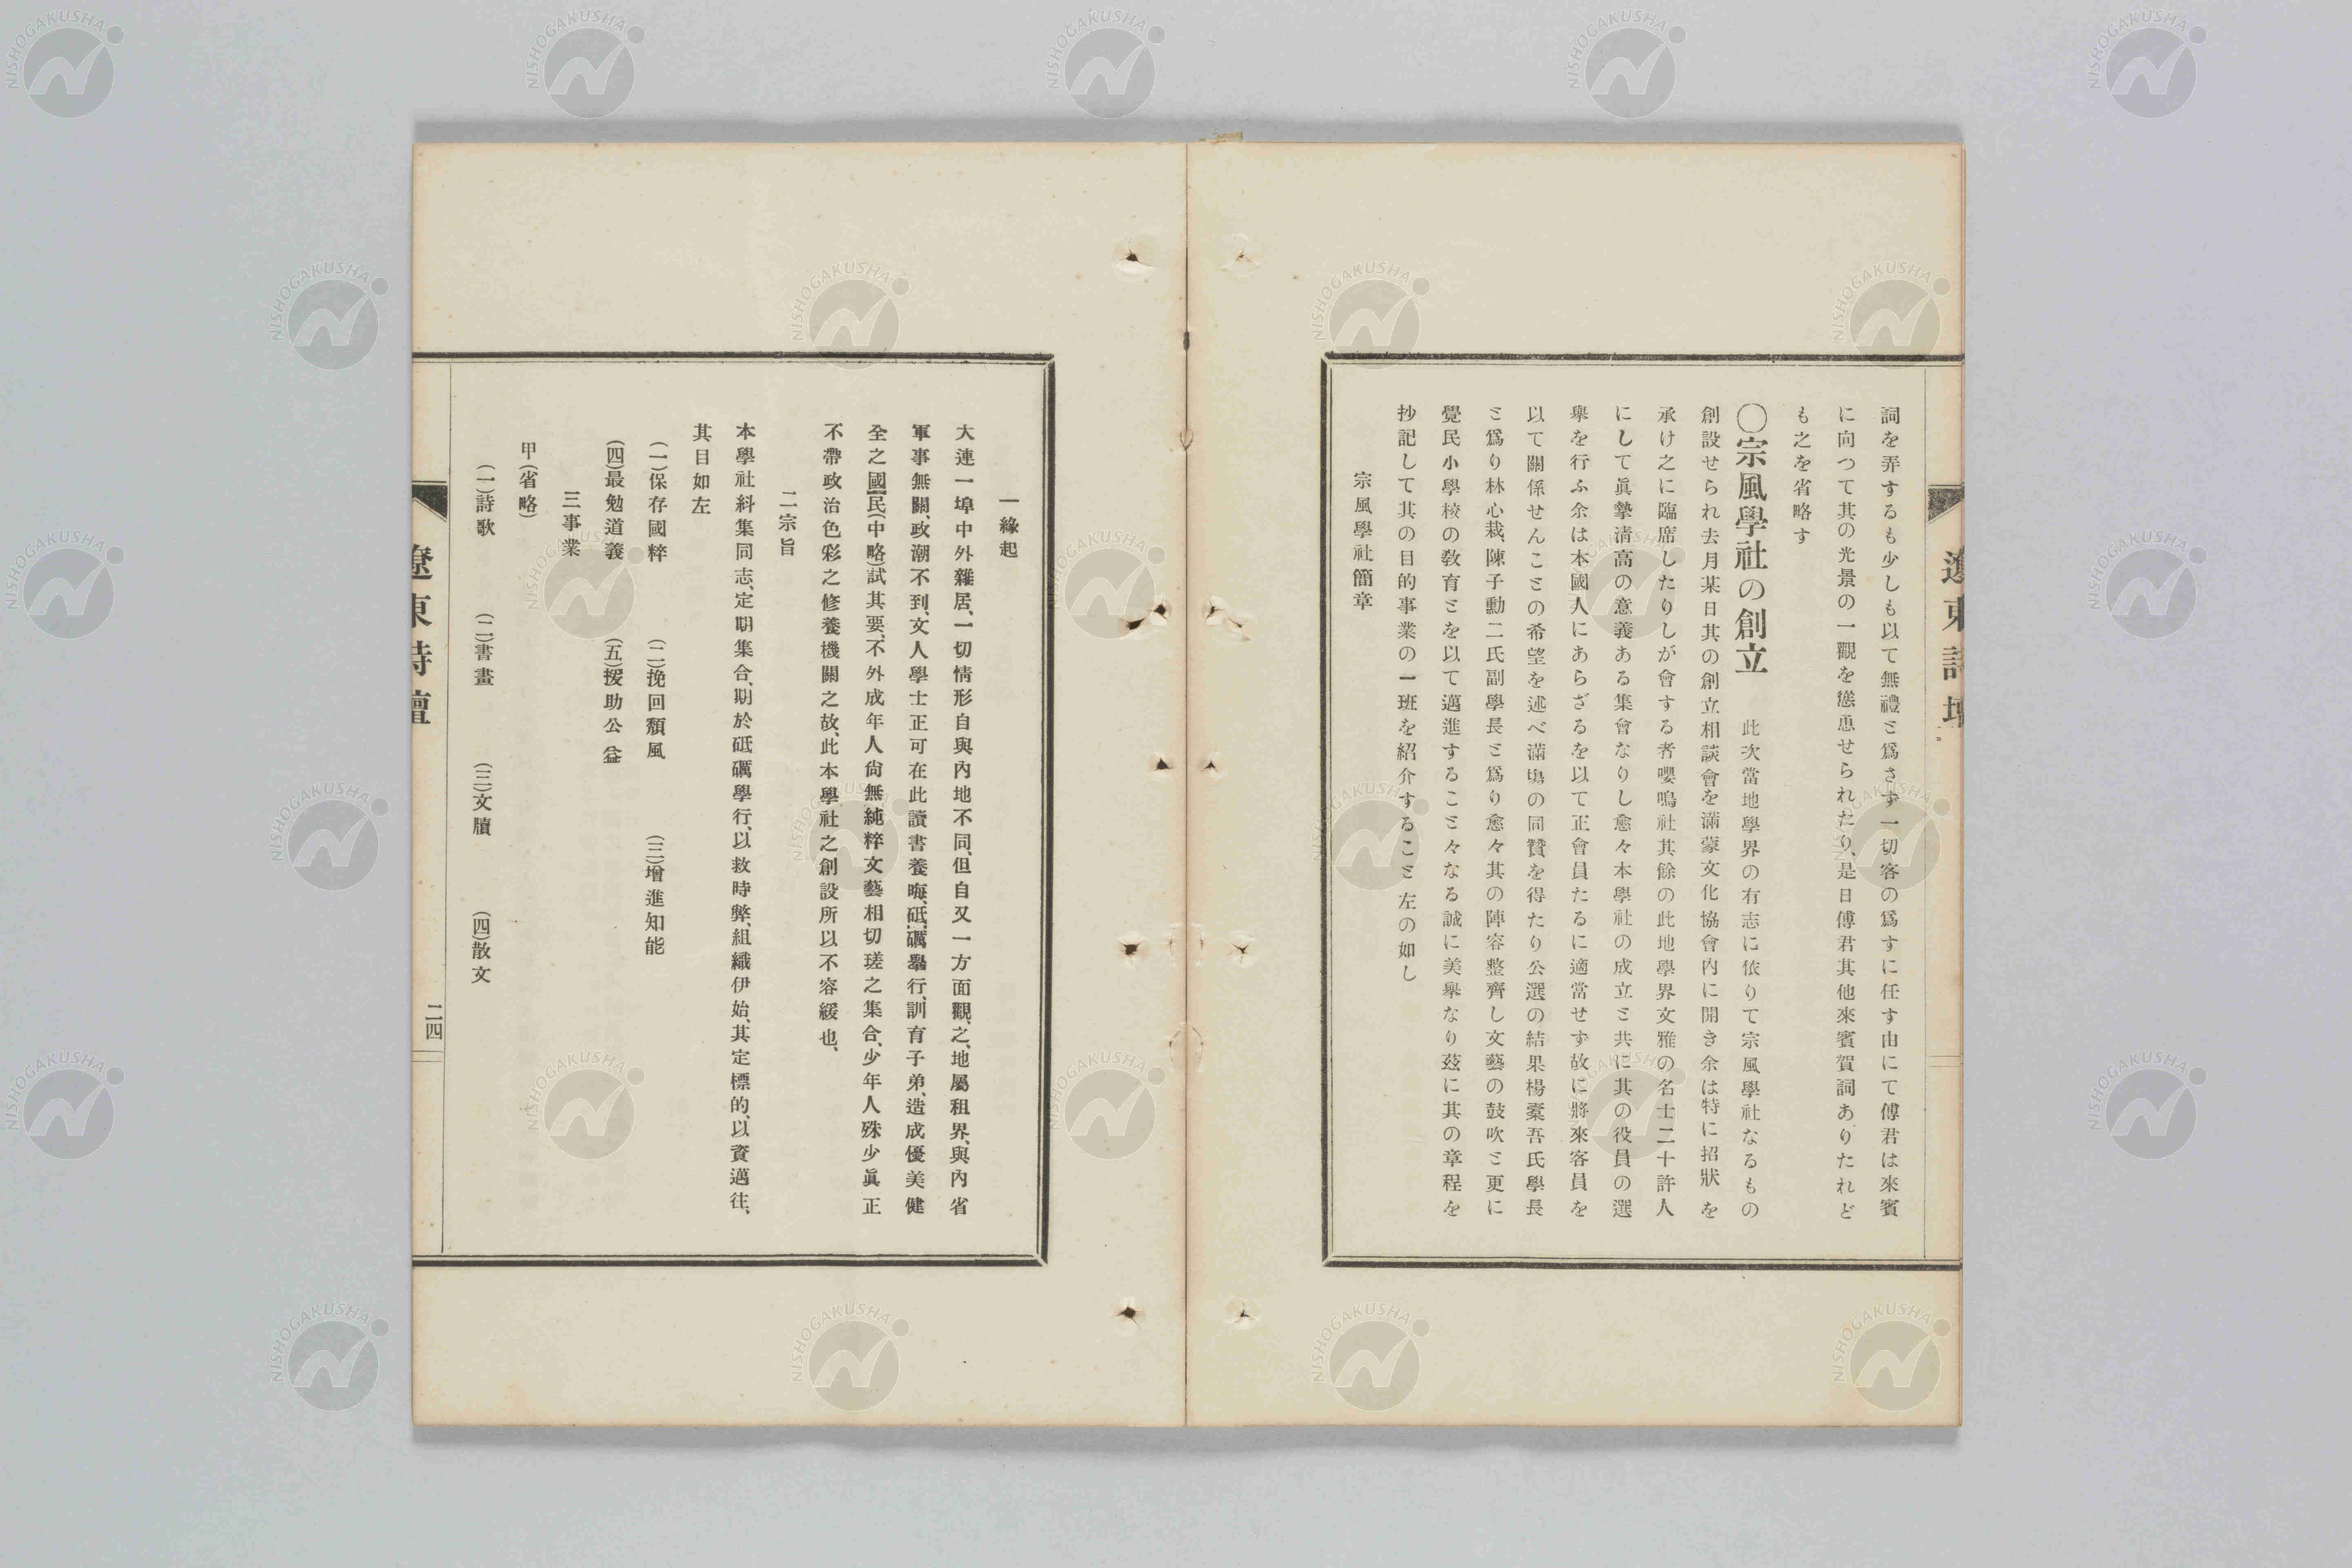 遼東詩壇
詞を弄するも少しも以て無禮と爲さず一切客の爲すに任す由にて傅君は來賓
に向つて其の光景の一觀を慫慂せられたり、是日傅君其他來賓賀詞ありたれど
も之を省略す
〇宗風學社の創立 此次當地學界の有志に依りて宗風學社なるもの
創設せられ去月某日其の創立相談會を滿蒙文化協會内に開き余は特に招狀を
承け之に臨席したりしが會する者嚶鳴社其餘の此地學界文雅の名士二十許人
にして眞摯清高の意義ある集會なりし愈々本學社の成立と共に其の役員の選
擧を行ふ余は本國人にあらざるを以て正會員たるに適當せず故に將來客員を
以て關係せんことの希望を述べ滿塲の同贊を得たり公選の結果楊槖吾氏學長
と爲り林心栽、陳子動二氏副學長と爲り愈々其の陣容整齊し文藝の鼓吹と更に
覺民小學校の敎育とを以て邁進すること々なる誠に美擧なり玆に其の章程を
抄記して其の目的事業の一班を紹介すること左の如し
宗風學社簡章
一緣起
大連一埠中外雜居、一切情形自與內地不同、但自又一方面觀、之、地屬租界、與內省
軍事無關、政潮不到、文人學士正可在此讀書養晦、砥、礪擧行、訓育子弟、造成優美健
全之國民(中略)試其要、不外成年人尙無純粹文藝相切瑳之集合、少年人殊少眞正
不帶政治色彩之修養機關之故、此本學社之創設所以不容緩也、
二宗旨
本學社糾集同志、定期集合、期於砥礪學行、以救時弊、組織伊始、其定標的、以資邁往、
其目如左
(一)保存國粹 (二)挽回頹風 (三)增進知能
(四)最勉道義 (五)援助公益
三事業
甲(省略)
(一)詩歌 (二)書畫 (三)文牘 (四)散文
遼東詩壇 二四